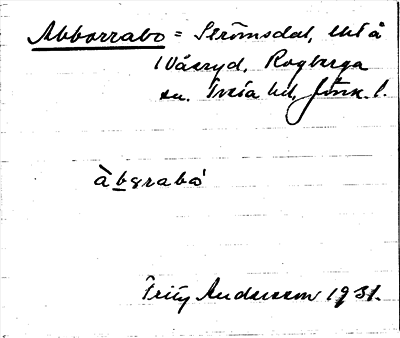 Abborrabo = Strömsdal, uti å
Våxryd, Rogberga
sn. Tveta hd, Jönk. l.
àbqrabó
Fritz Andersson 1931.